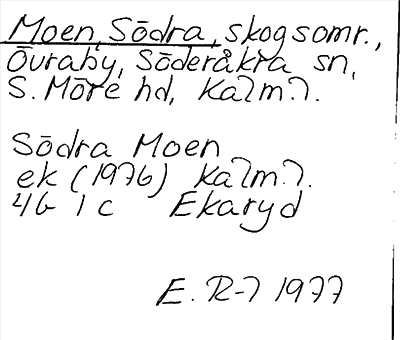 Moen, Södra, skogsomr.,
Övraby, Söderåkra sn,
S. Möre hd, Kalm.l.
Södra Moen
ek (1976) Kalm.l.
4G 1c Ekaryd
E. R-l 1977